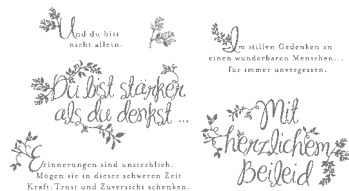 Und du bist
nicht allein.
Im stillen Gedenken an
einen wunderbaren Menschen...
für immer unvergessen.
Du bist stärker
als du denkst ...
Mit
herzlichem
Beileid
Erinnerungen sind unsterblich.
Mögen sie in dieser schweren Zeit
Kraft, Trost und Zuversicht schenken.